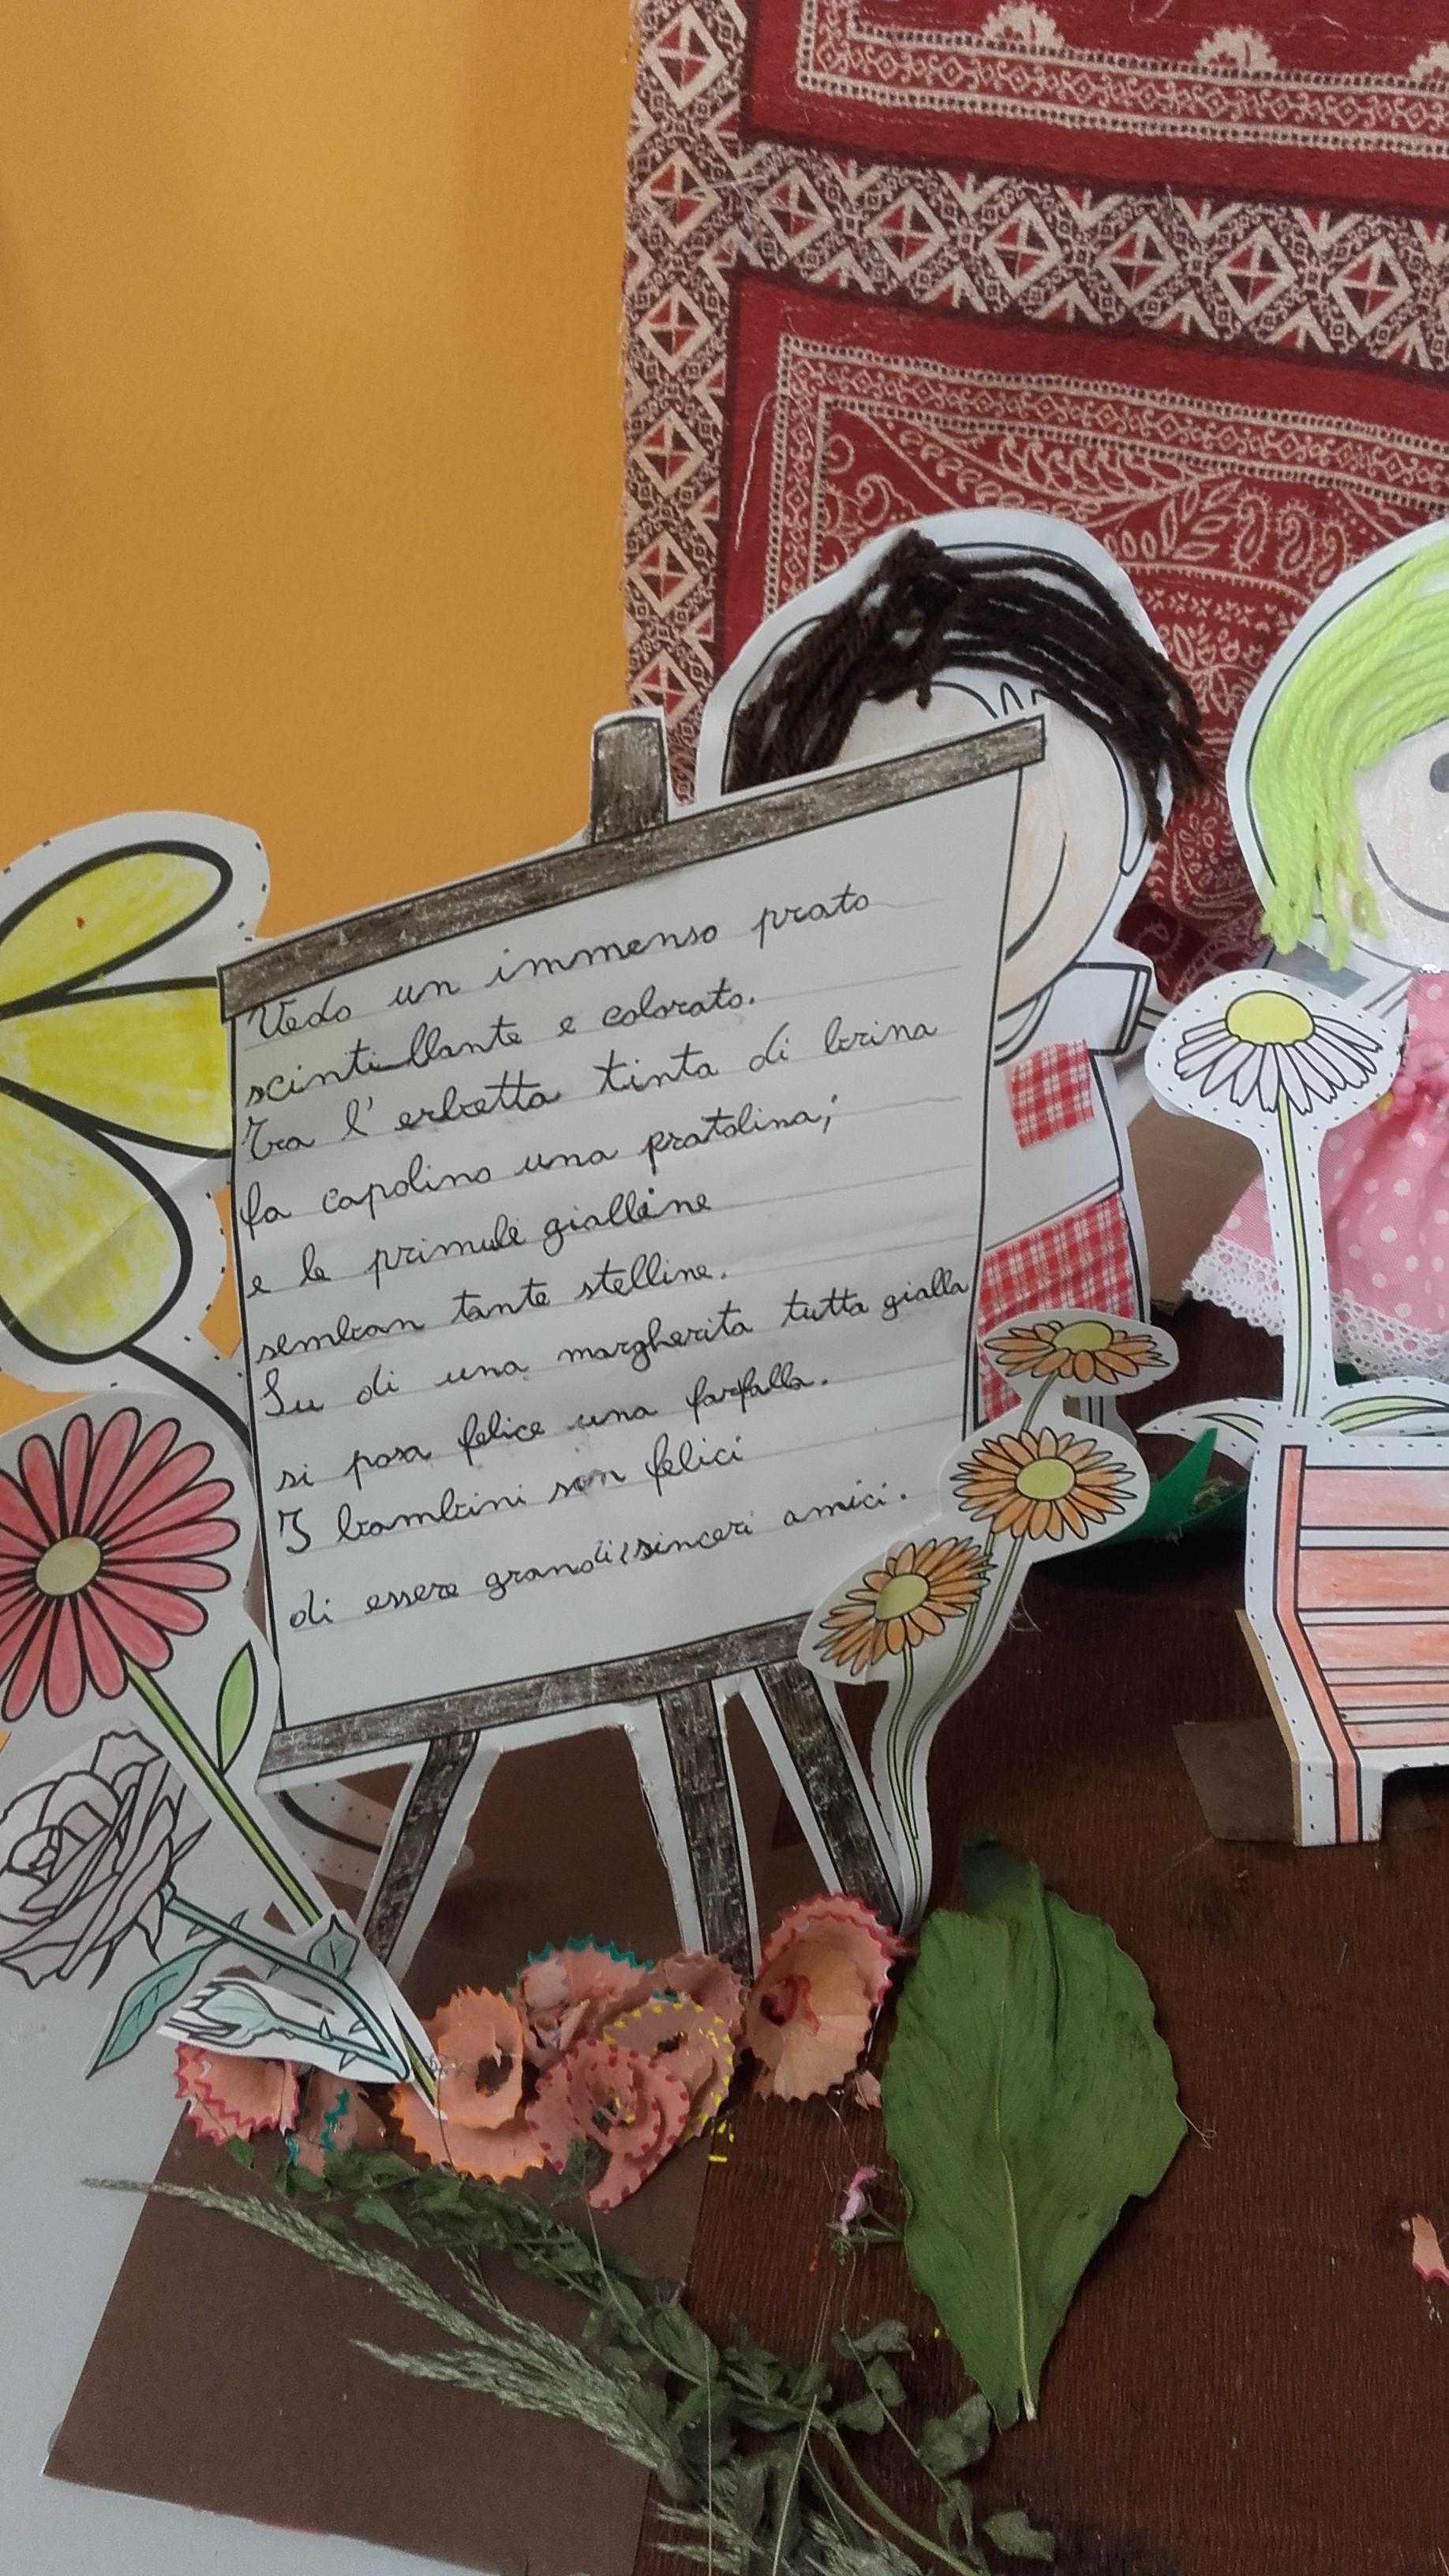 Vedo un immenso prato
scintillante e colorato.
Tra l'erbetta tinta di brina
fa capolino una pratolina;
e le primule gialline
sembran tante stelline.
Su di una margherita tutta gialla
si posa felice una farfalla.
I bambini son felici
di essere grandi e sinceri amici.